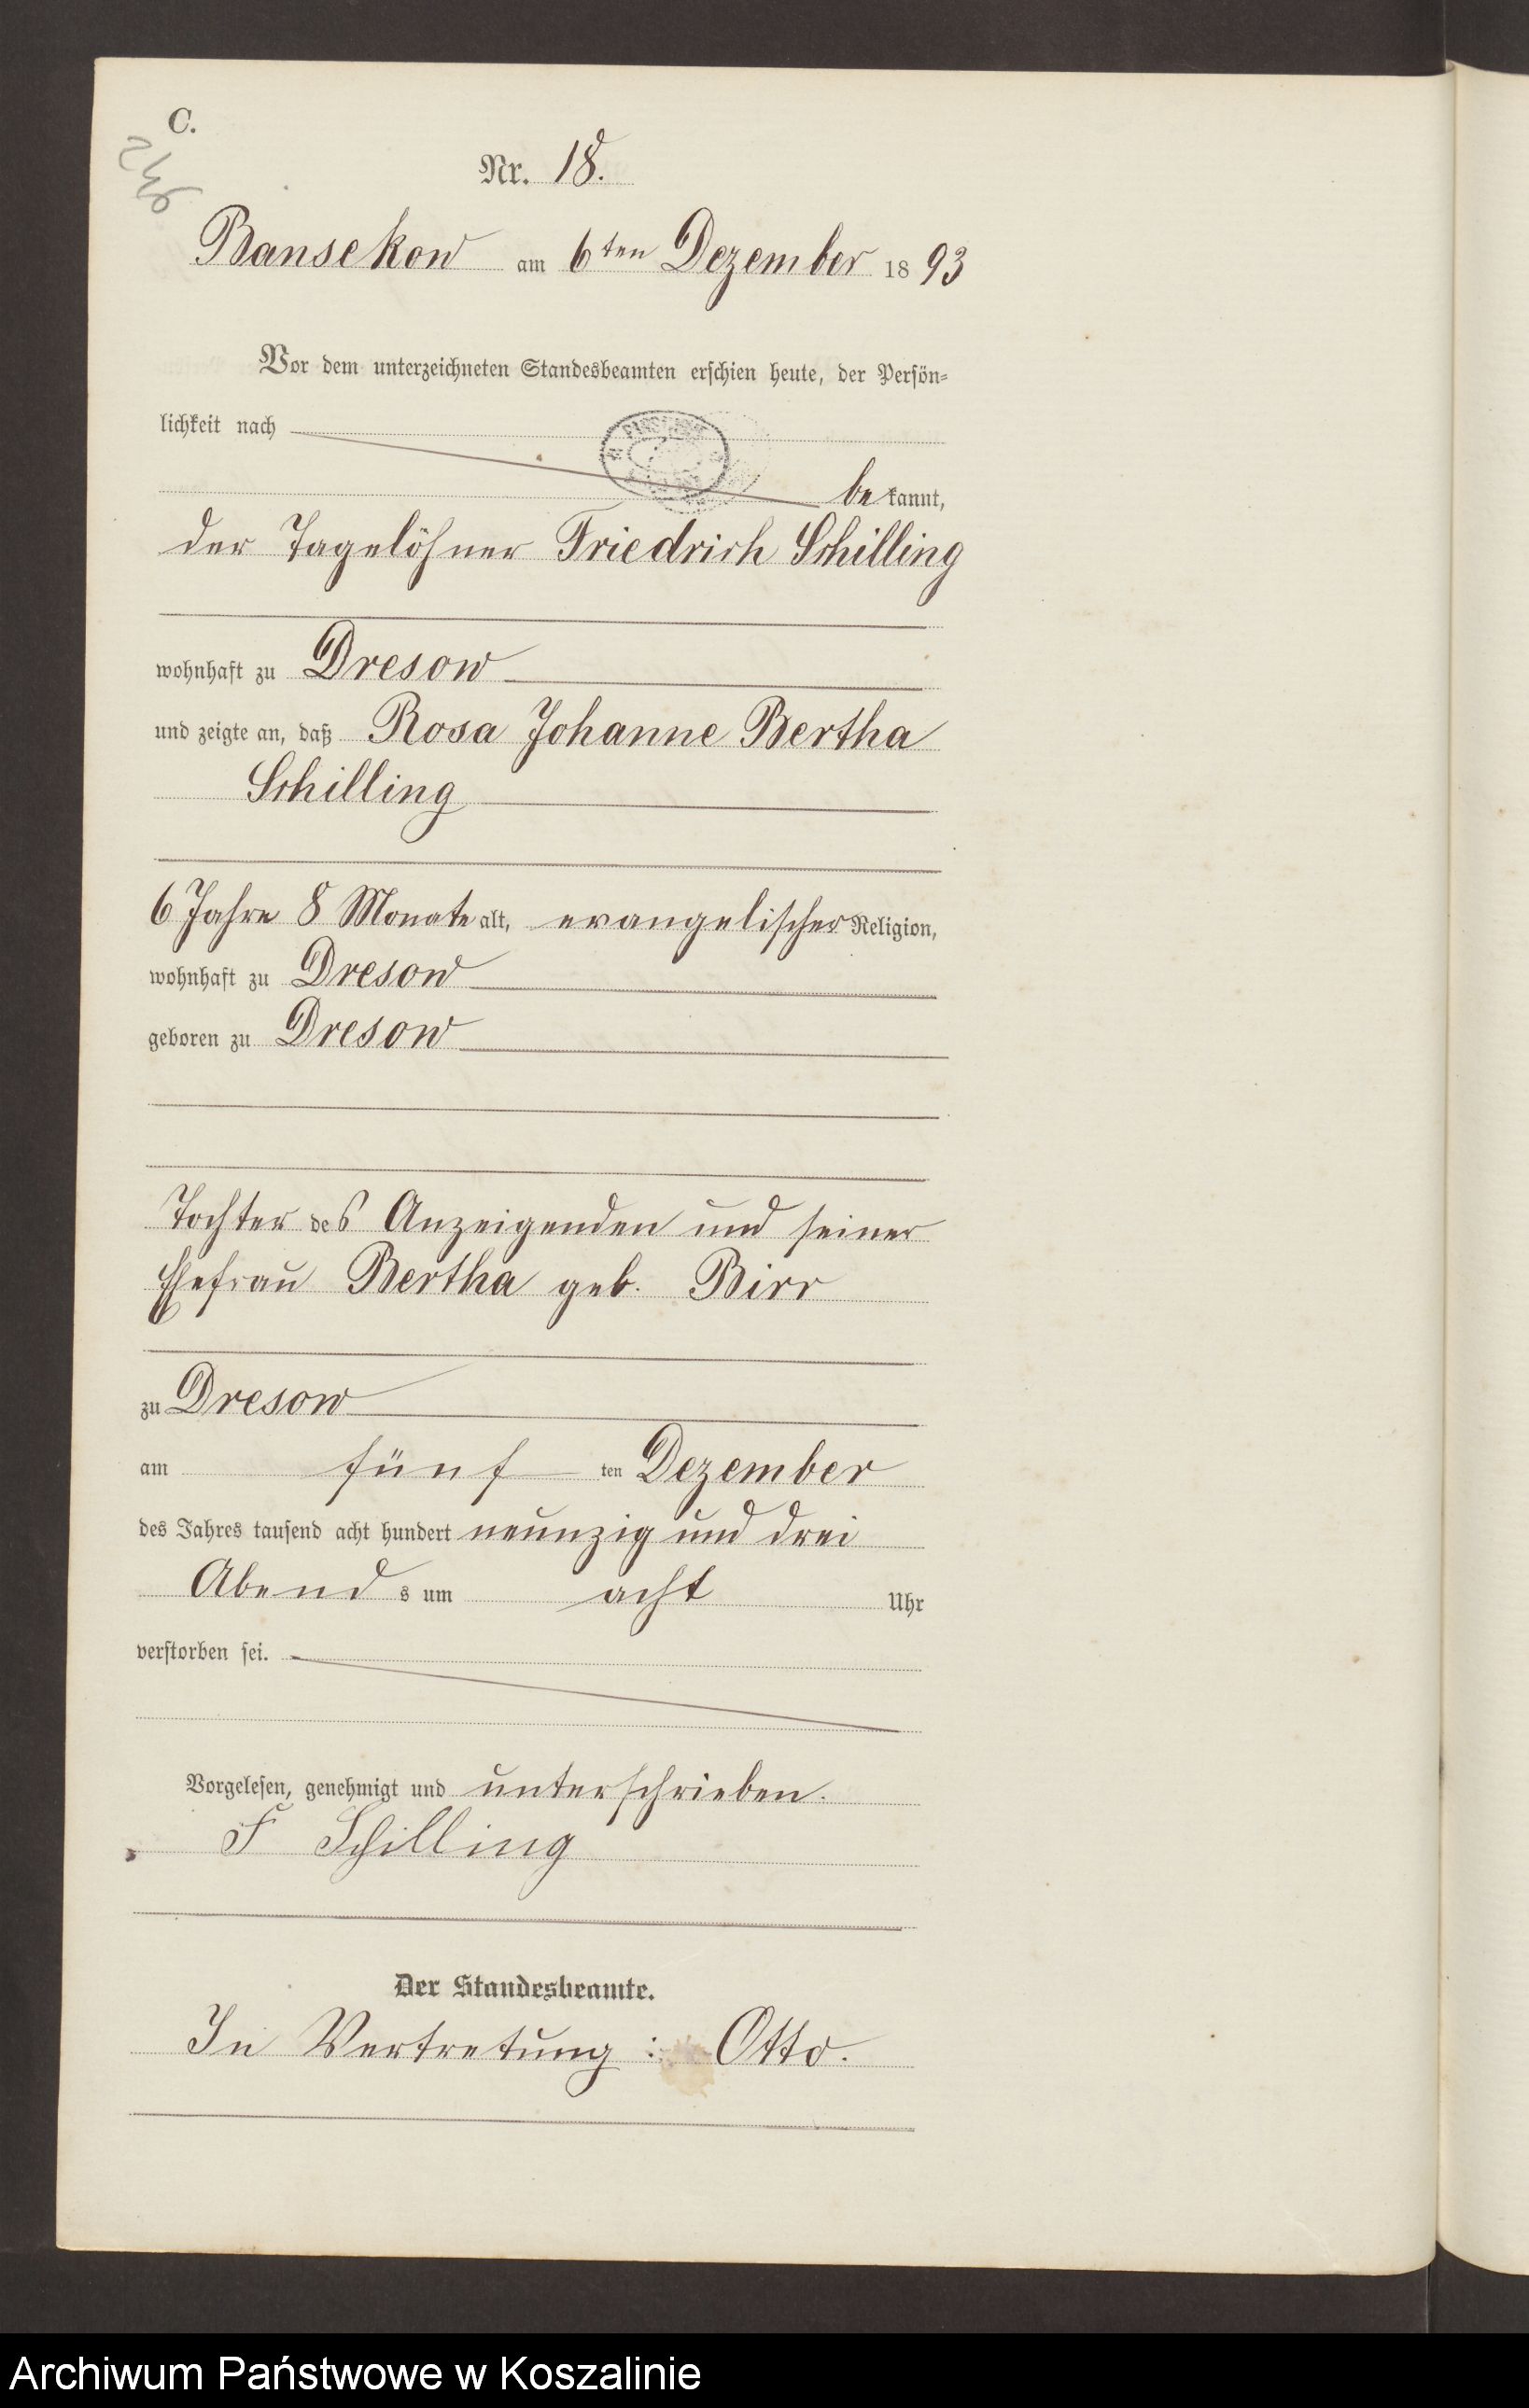 C.
Nr. 18.
Bansekow am 6ten Dezember 1893
Vor dem unterzeichneten Standesbeamten erschien heute, der Persön-
lichkeit nach
bekannt,
der Tagelöhner Friedrich Schilling
wohnhaft zu Dresow
und zeigte an, daß Rosa Johanne Bertha
Schilling
6 Jahre 8 Monate alt, evangelischer Religion,
wohnhaft zu Dresow
geboren zu Dresow
Tochter des Anzeigenden und seiner
Ehefrau Bertha geb. Birr
zu Dresow
am fünf ten Dezember
des Jahres tausend acht hundert neunzig und drei
Abend s um acht Uhr
verstorben sei.
Vorgelesen, genehmigt und unterschrieben.
F Schilling
Der Standesbeamte.
In Vertretung: Otto.
Archiwum Państwowe w Koszalinie